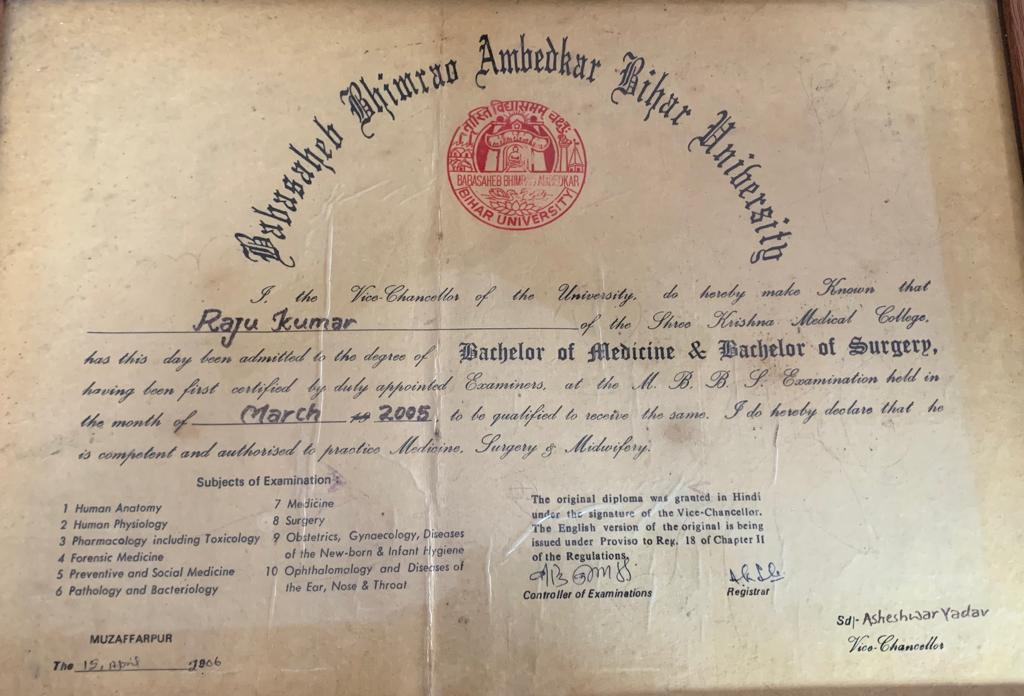 Babasaheb Bhimrao Ambedkar Bihar University
नास्ति विद्यासमम् चक्षुः
BABASAHEB BHIMRAO AMBEDKAR
BIHAR UNIVERSITY
I, the Vice-Chancellor of the University, do hereby make Known that
Raju Kumar of the Shree Krishna Medical College,
has this day been admitted to the degree of Bachelor of Medicine & Bachelor of Surgery,
having been first certified by duly appointed Examiners, at the M. B. B. S. Examination held in
the month of March 19 2005, to be qualified to receive the same. I do hereby declare that he
is competent and authorised to practice Medicine, Surgery & Midwifery.
Subjects of Examination :
1 Human Anatomy
2 Human Physiology
3 Pharmacology including Toxicology
4 Forensic Medicine
5 Preventive and Social Medicine
6 Pathology and Bacteriology
7 Medicine
8 Surgery
9 Obstetrics, Gynaecology, Diseases
of the New-born & Infant Hygiene
10 Ophthalomology and Diseases of
the Ear, Nose & Throat
The original diploma was granted in Hindi
under the signature of the Vice-Chancellor.
The English version of the original is being
issued under Proviso to Reg. 18 of Chapter II
of the Regulations.
Controller of Examinations
Registrar
Sd/- Asheshwar Yadav
Vice-Chancellor
MUZAFFARPUR
The 15, April 2006